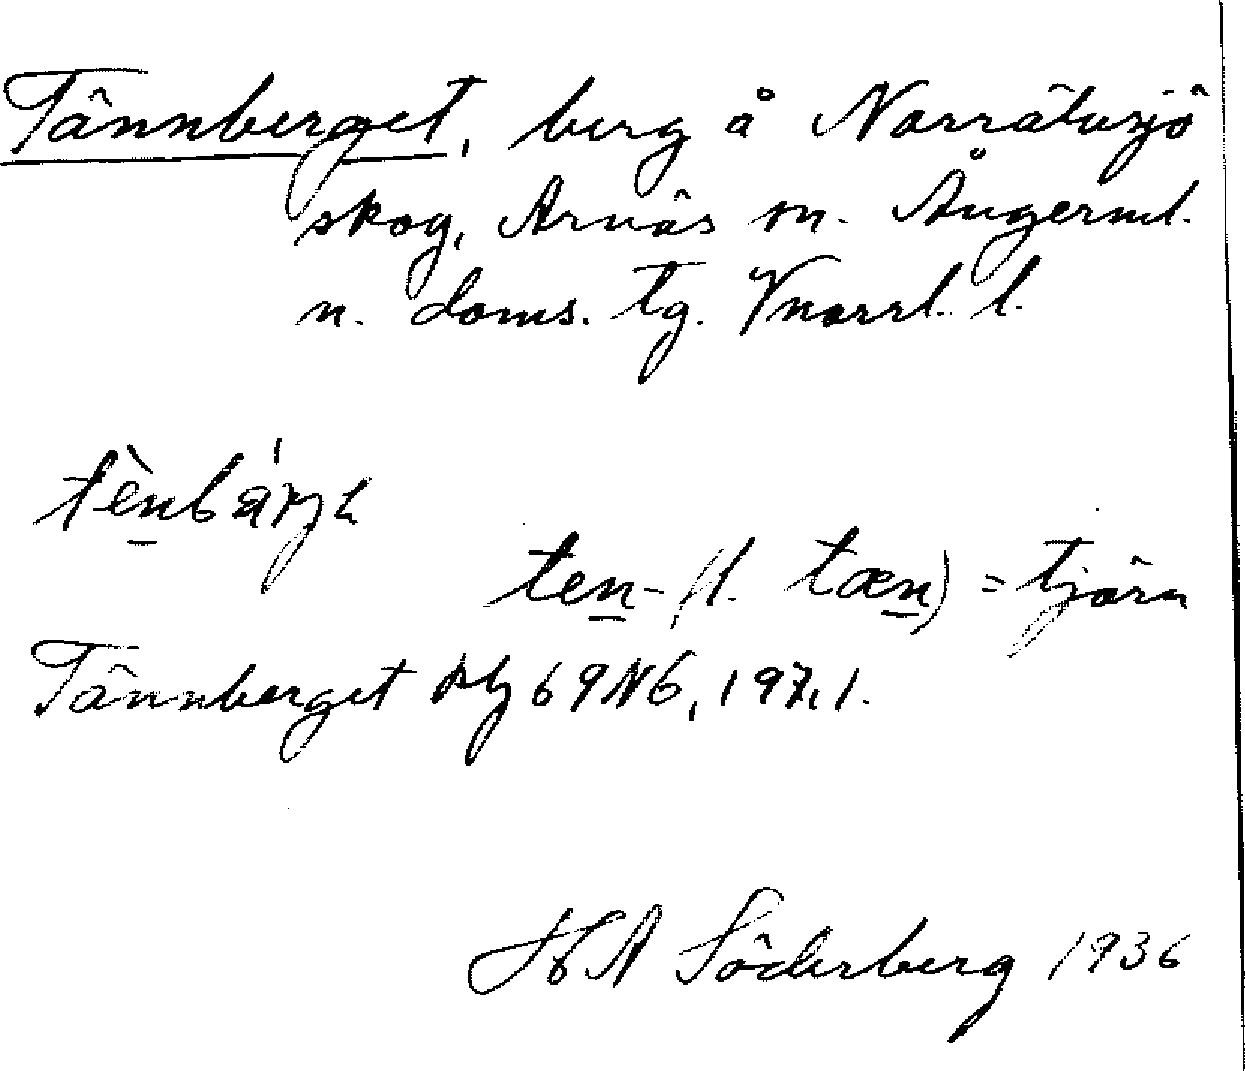 Tännberget, berg å Norrätusjö
skog, Arnäs sn. Ångerml.
n. doms. tg. Vnorrl. l.
tènbárjə
ten- (l. tæn) = tjärn
Tännberget 69 N6, 197, 1.
HA Söderberg 1936